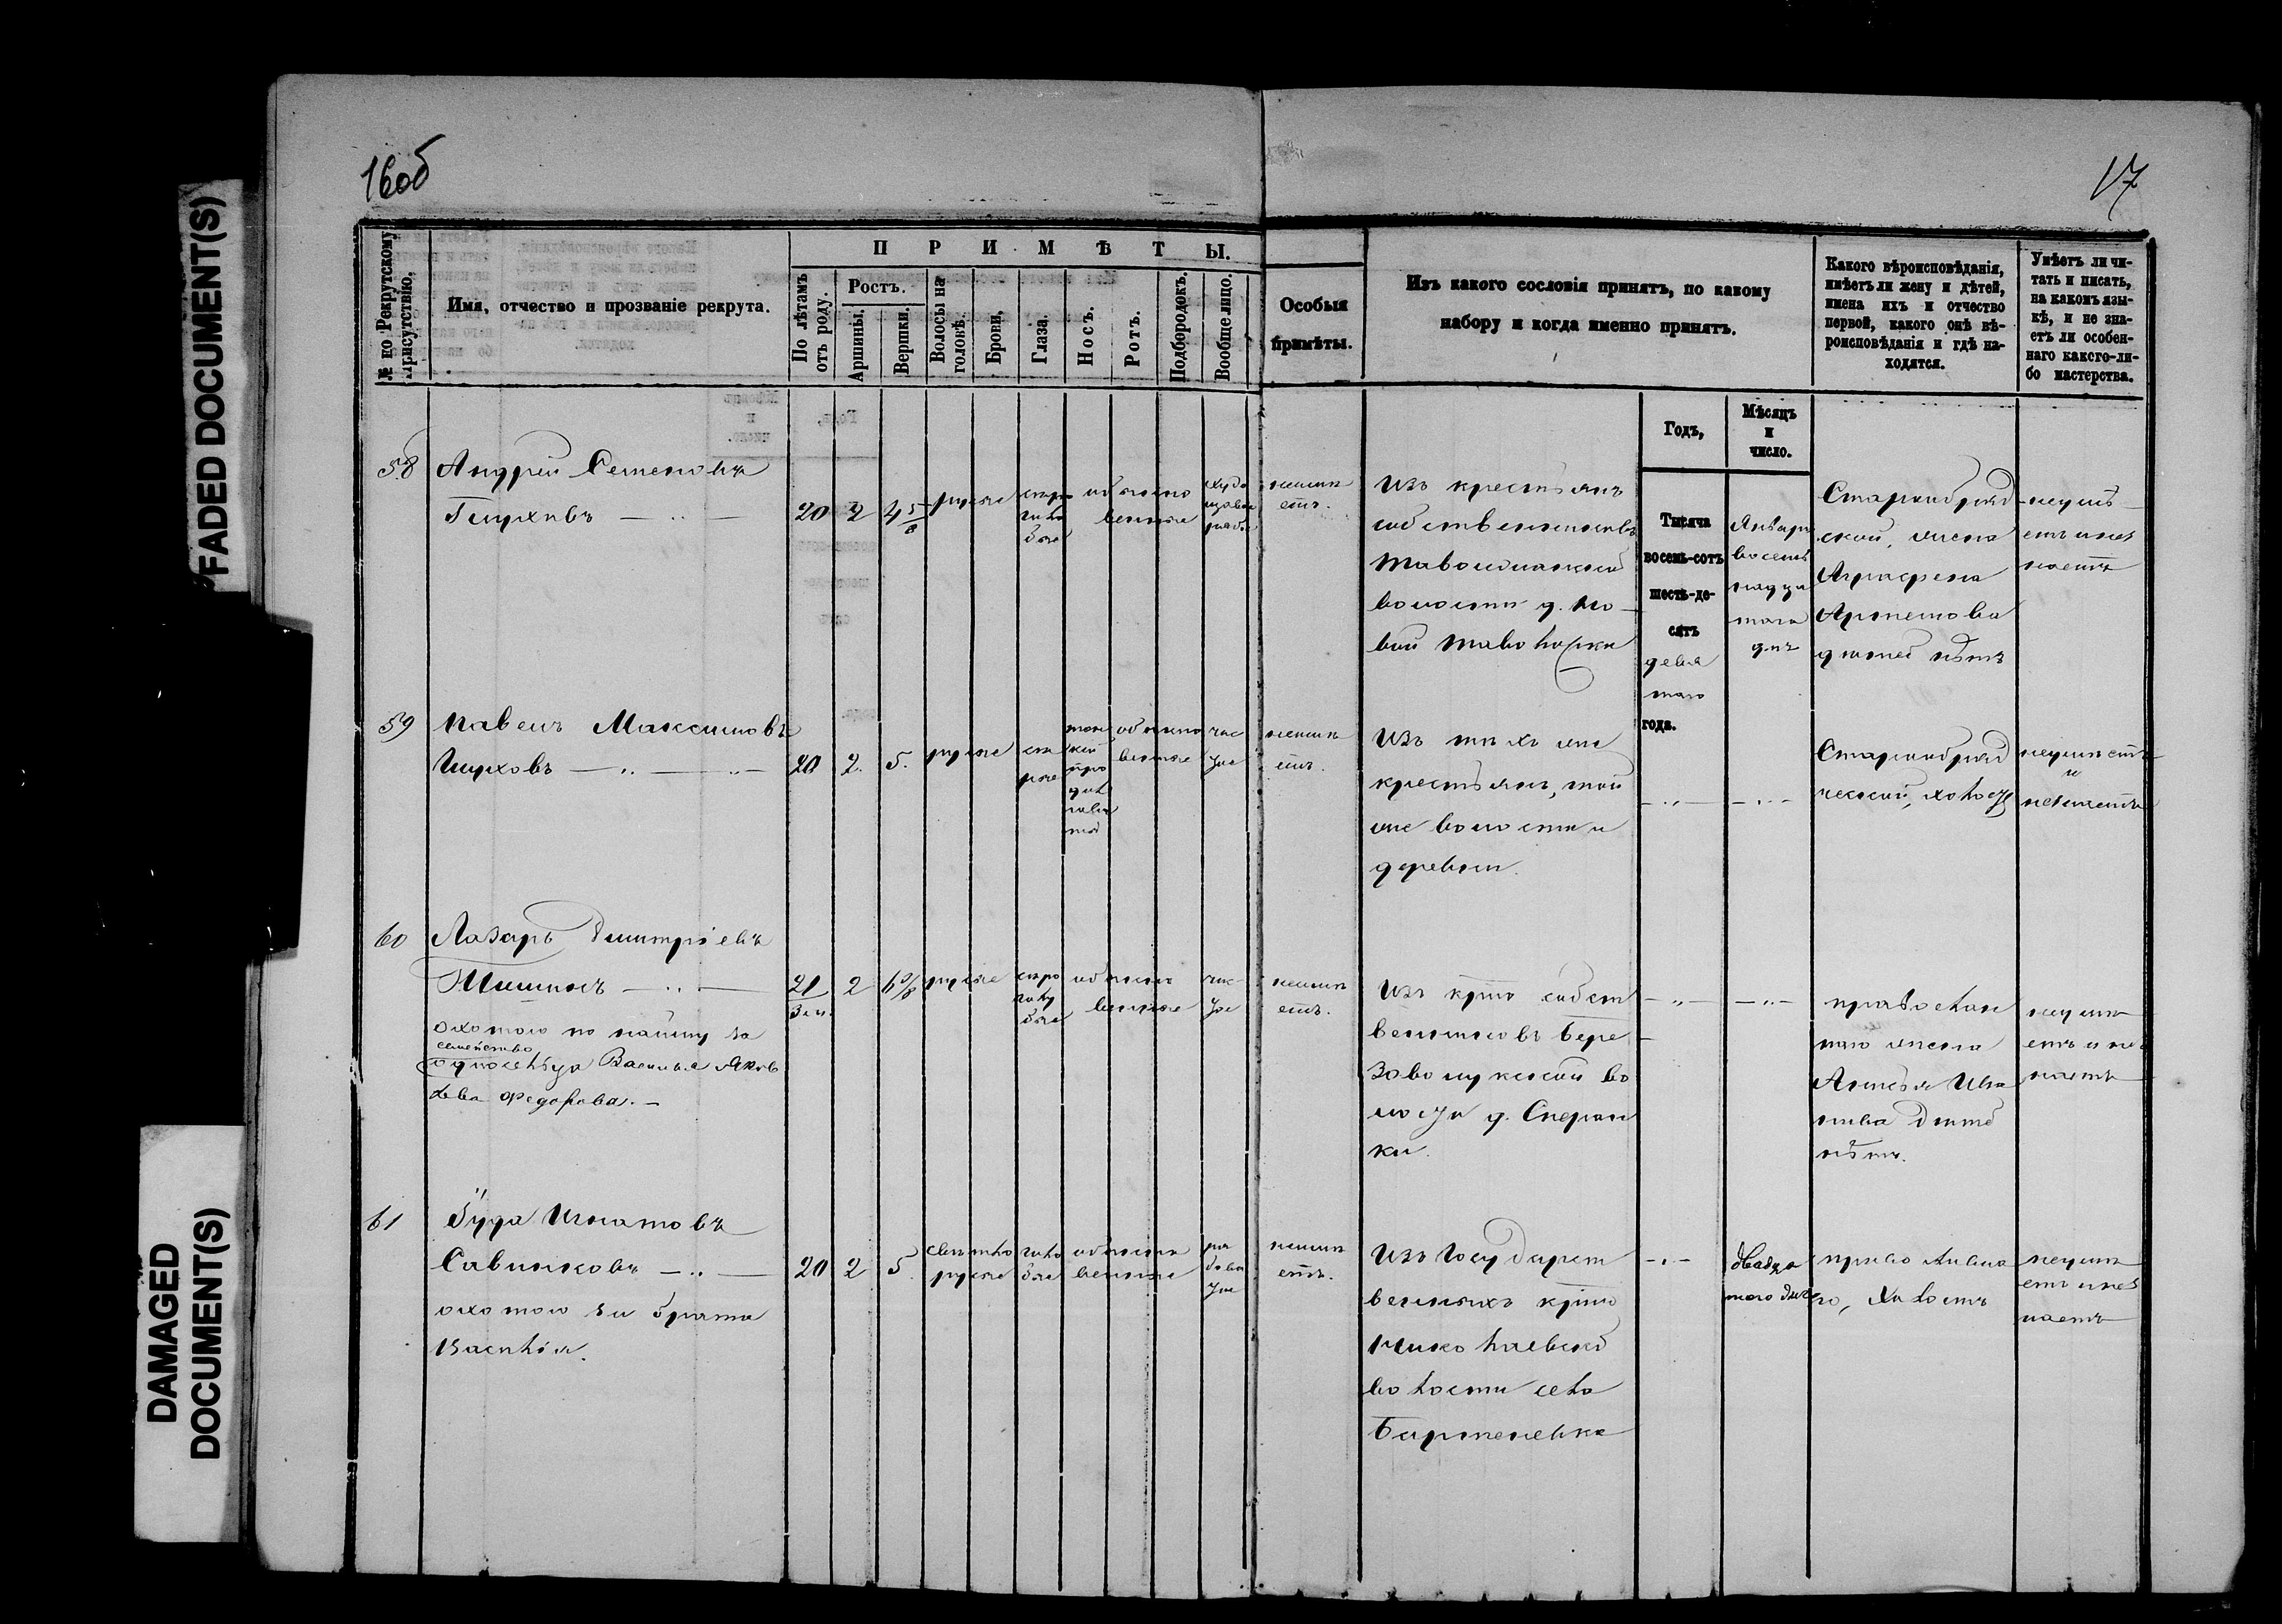 16об
17
FADED DOCUMENT(S)
DAMAGED DOCUMENT(S)
№ по Рекрутскому присутствію.
Имя, отчество и прозваніе рекрута.
ПРИМѢТЫ.
По лѣтамъ отъ роду.
Ростъ.
Аршины.
Вершки.
Волосы на головѣ.
Брови,
Глаза.
Носъ.
Ротъ.
Подбородокъ.
Вообще лицо.
Особыя
примѣты.
Изъ какого сословія принятъ, по какому
набору и когда именно принятъ.
Какого вѣроисповѣданія,
имѣетъ ли жену и дѣтей,
имена ихъ и отчество
первой, какого онѣ вѣ-
роисповѣданія и гдѣ на-
ходятся.
Умѣетъ ли чи-
тать и писать,
на какомъ язы-
кѣ, и не зна-
етъ ли особен-
наго какого-ли-
бо мастерства.
Годъ,
Мѣсяцъ
и
число.
58
Андрей Семеновъ
20
2
4 5/8
русые
обыкно
венные
неимѣ
етъ.
Изъ крестьянъ
собственниковъ
Таволжанской
волости д. Но-
вой Таволожки
Тысяча
восемь-сотъ
шесть-де-
сятъ
девя
таго
года.
Января
восем
надца
таго
дня
Старообряд
ской, жена
Аграфена
Артемова
дѣтей нѣтъ
неумѣ
етъ и нез
наетъ
59
Павелъ Максимовъ
Шуховъ — „ — „ —
20
2.
5.
русые
сѣ
рые
обыкно
венные
чис
тое
неимѣ
етъ.
Изъ тѣхъ же
крестьянъ, той
же волости и
деревни.
— „ —
— „ —
Старообряд
ческой, холост
неумѣетъ
и
незнаетъ
60
Лазарь Дмитріевъ
Шишкинъ — „ —
охотою по найму за
семейство
односельца Василья Яков
лева Федорова. —
21
2
русые
сѣро
голу
бые
обыкно
венные
чис-
тое
неимѣ
етъ.
Изъ крто собст
венниковъ Бере
зоволукской во
лости д. Сперан
ки.
— „ —
— „ —
православ
наго жена
Ива
нова дѣтей
нѣтъ.
неумѣ
етъ и нез
наетъ
61
Іуда Игнатовъ
Савинковъ — „ —
охотою за брата
Василія.
20
2
5.
свѣтло
русые
голу
бые
обыкно
венные
ря
бова
тое
неимѣ
етъ.
Изъ Государст
венныхъ крто
Николаевской
волости села
Бартеневка
— „ —
двадца
таго дня
православна
го, Холостъ
неумѣ
етъ и нез
наетъ